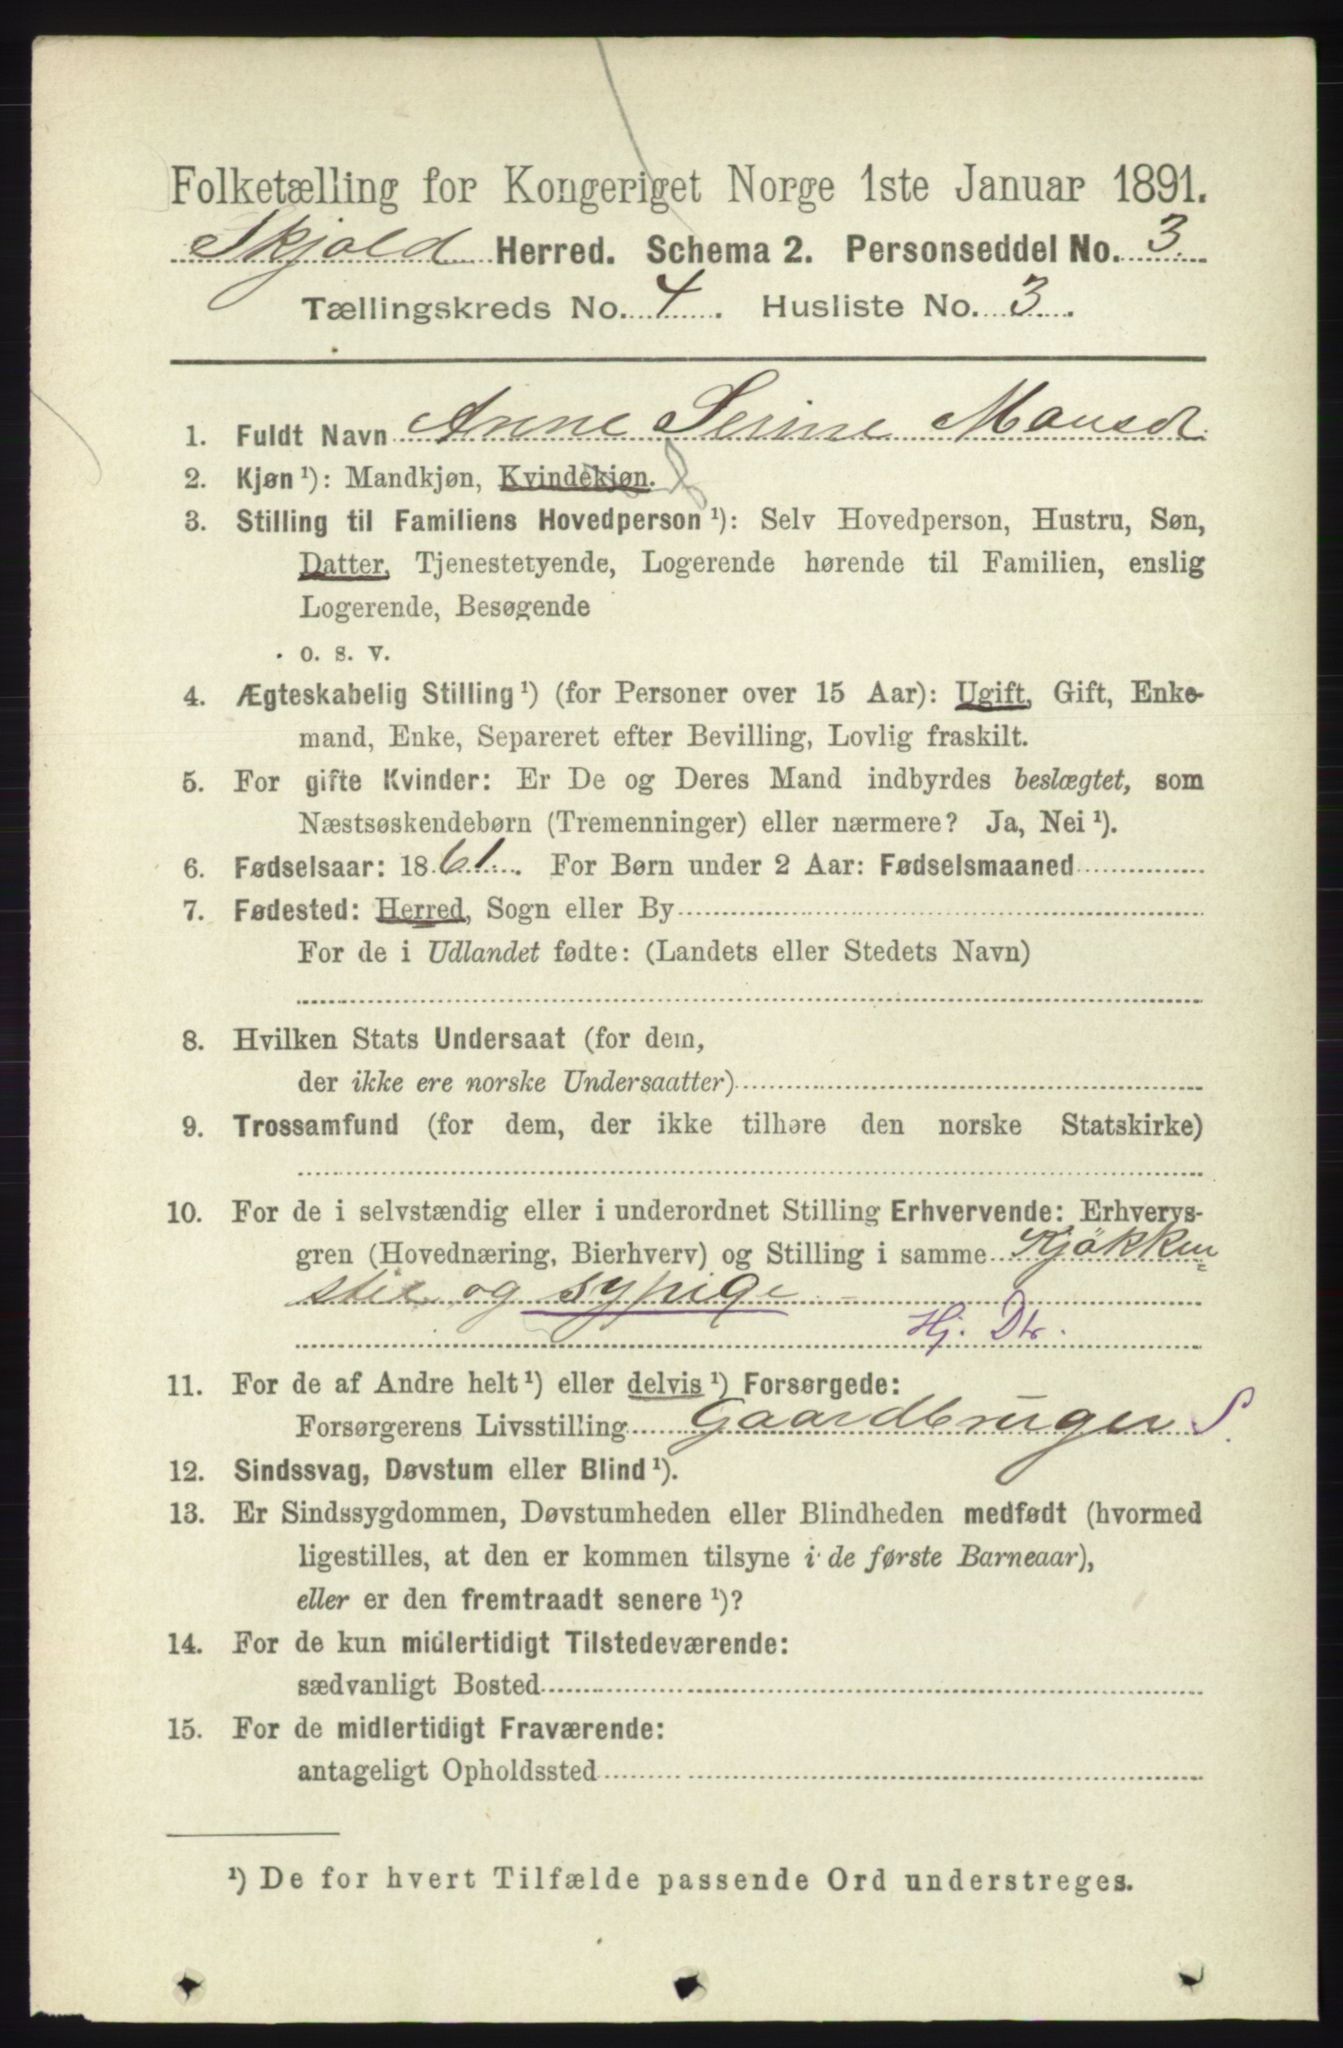 Folketælling for Kongeriget Norge 1ste Januar 1891.
Skjold Herred. Schema 2. Personseddel No. 3.
Tællingskreds No. 4. Husliste No. 3.
1. Fuldt Navn Anne Serine Mausdr
2. Kjøn ¹): Mandkjøn, Kvindekjøn.
3. Stilling til Familiens Hovedperson ¹): Selv Hovedperson, Hustru, Søn,
Datter, Tjenestetyende, Logerende hørende til Familien, enslig
Logerende, Besøgende
o. s. v.
4. Ægteskabelig Stilling ¹) (for Personer over 15 Aar): Ugift, Gift, Enke-
mand, Enke, Separeret efter Bevilling, Lovlig fraskilt.
5. For gifte Kvinder: Er De og Deres Mand indbyrdes beslægtet, som
Næstsøskendebørn (Tremenninger) eller nærmere? Ja, Nei ¹).
6. Fødselsaar: 1861. For Børn under 2 Aar: Fødselsmaaned
7. Fødested: Herred, Sogn eller By
For de i Udlandet fødte: (Landets eller Stedets Navn)
8. Hvilken Stats Undersaat (for dem,
der ikke ere norske Undersaatter)
9. Trossamfund (for dem, der ikke tilhøre den norske Statskirke)
10. For de i selvstændig eller i underordnet Stilling Erhvervende: Erhvervs-
gren (Hovednæring, Bierhverv) og Stilling i samme Kjökken=
stel og sypige
Hj. Dtr.
11. For de af Andre helt ¹) eller delvis ¹) Forsørgede:
Forsørgerens Livsstilling Gaardbruger S.
12. Sindssvag, Døvstum eller Blind ¹).
13. Er Sindssygdommen, Døvstumheden eller Blindheden medfødt (hvormed
ligestilles, at den er kommen tilsyne i de første Barneaar),
eller er den fremtraadt senere ¹)?
14. For de kun midlertidigt Tilstedeværende:
sædvanligt Bosted
15. For de midlertidigt Fraværende:
antageligt Opholdssted
¹) De for hvert Tilfælde passende Ord understreges.